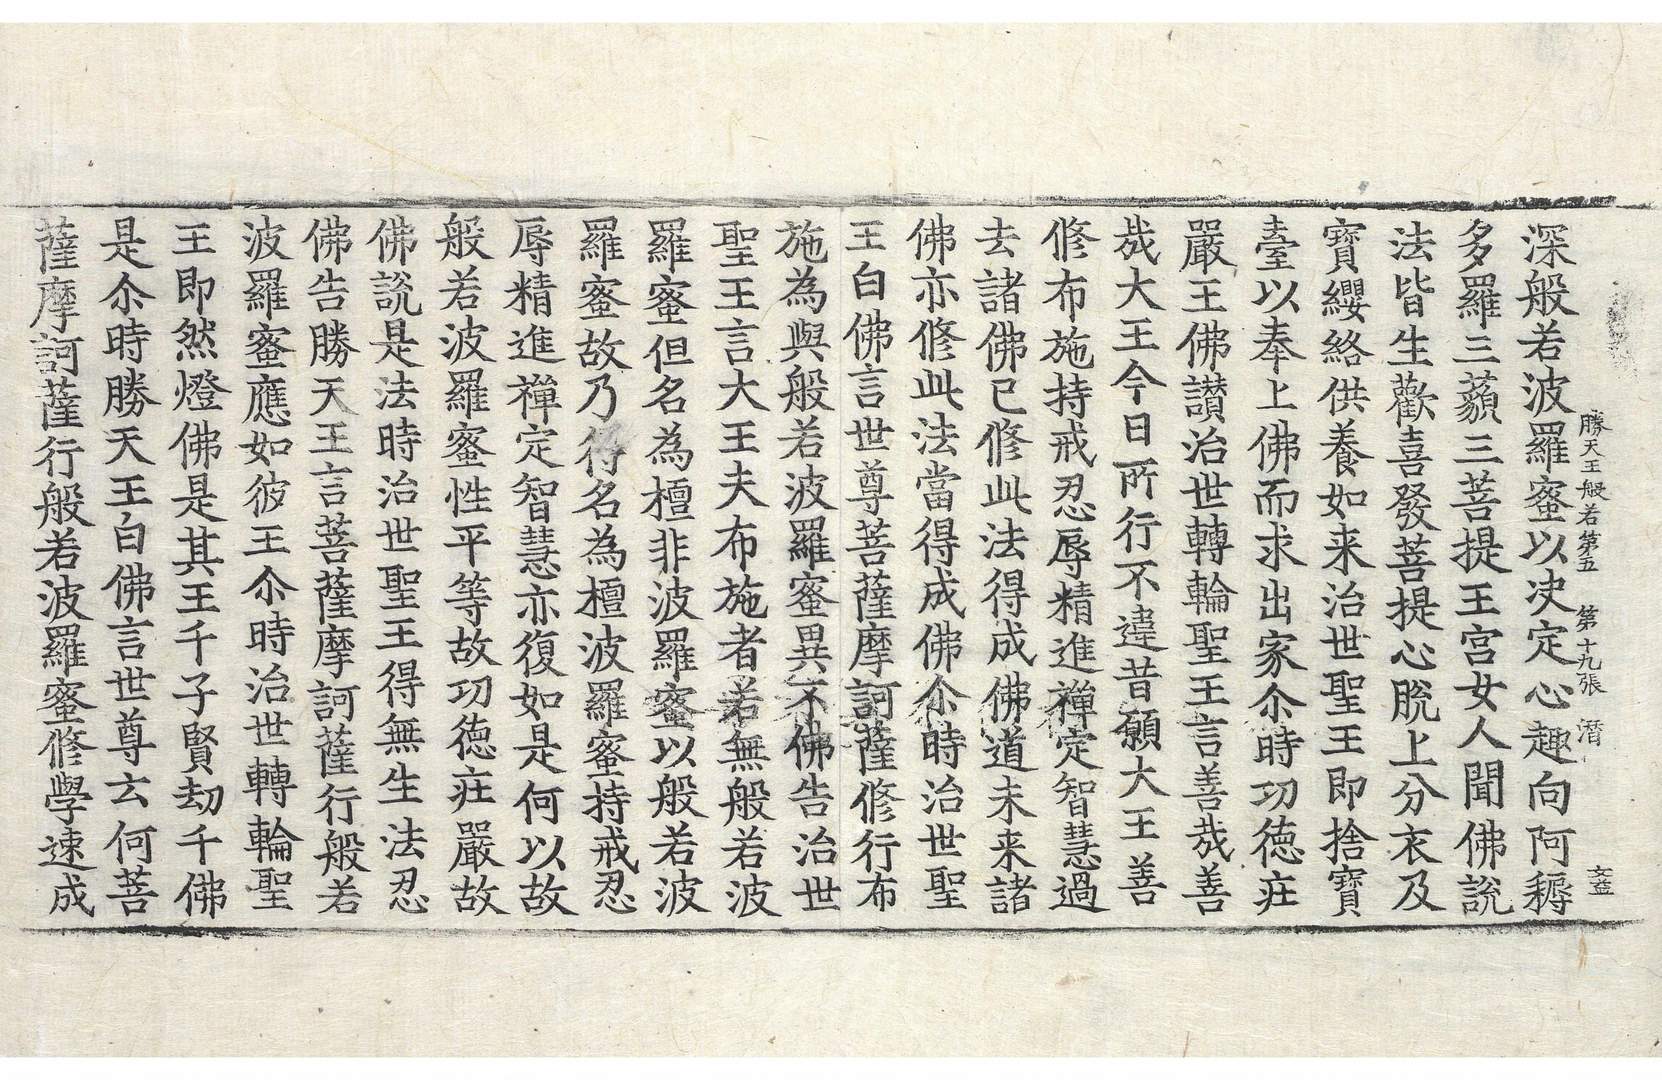 勝天王般若第五　第十九張　潛
深般若波羅蜜以决定心趣向阿耨
多羅三藐三菩提王宮女人聞佛說
法皆生歡喜發菩提心脫上分衣及
寶纓絡供養如来治世聖王即捨寶
臺以奉上佛而求出家尒時功德庄
嚴王佛讃治世轉輪聖王言善㢤善
㢤大王今日所行不違昔願大王善
修布施持戒忍辱精進禪定智慧過
去諸佛已修此法得成佛道未来諸
佛亦修此法當得成佛尒時治世聖
王白佛言世尊菩薩摩訶薩修行布
施為與般若波羅蜜異不佛告治世
聖王言大王夫布施者若無般若波
羅蜜但名為檀非波羅蜜以般若波
羅蜜故乃得名為檀波羅蜜持戒忍
辱精進禪定智慧亦復如是何以故
般若波羅蜜性平等故功德庄嚴故
佛說是法時治世聖王得無生法忍
佛告勝天王言菩薩摩訶薩行般若
波羅蜜應如彼王尒時治世轉輪聖
王即然燈佛是其王千子賢劫千佛
是尒時勝天王白佛言世尊云何菩
薩摩訶薩行般若波羅蜜修學速成